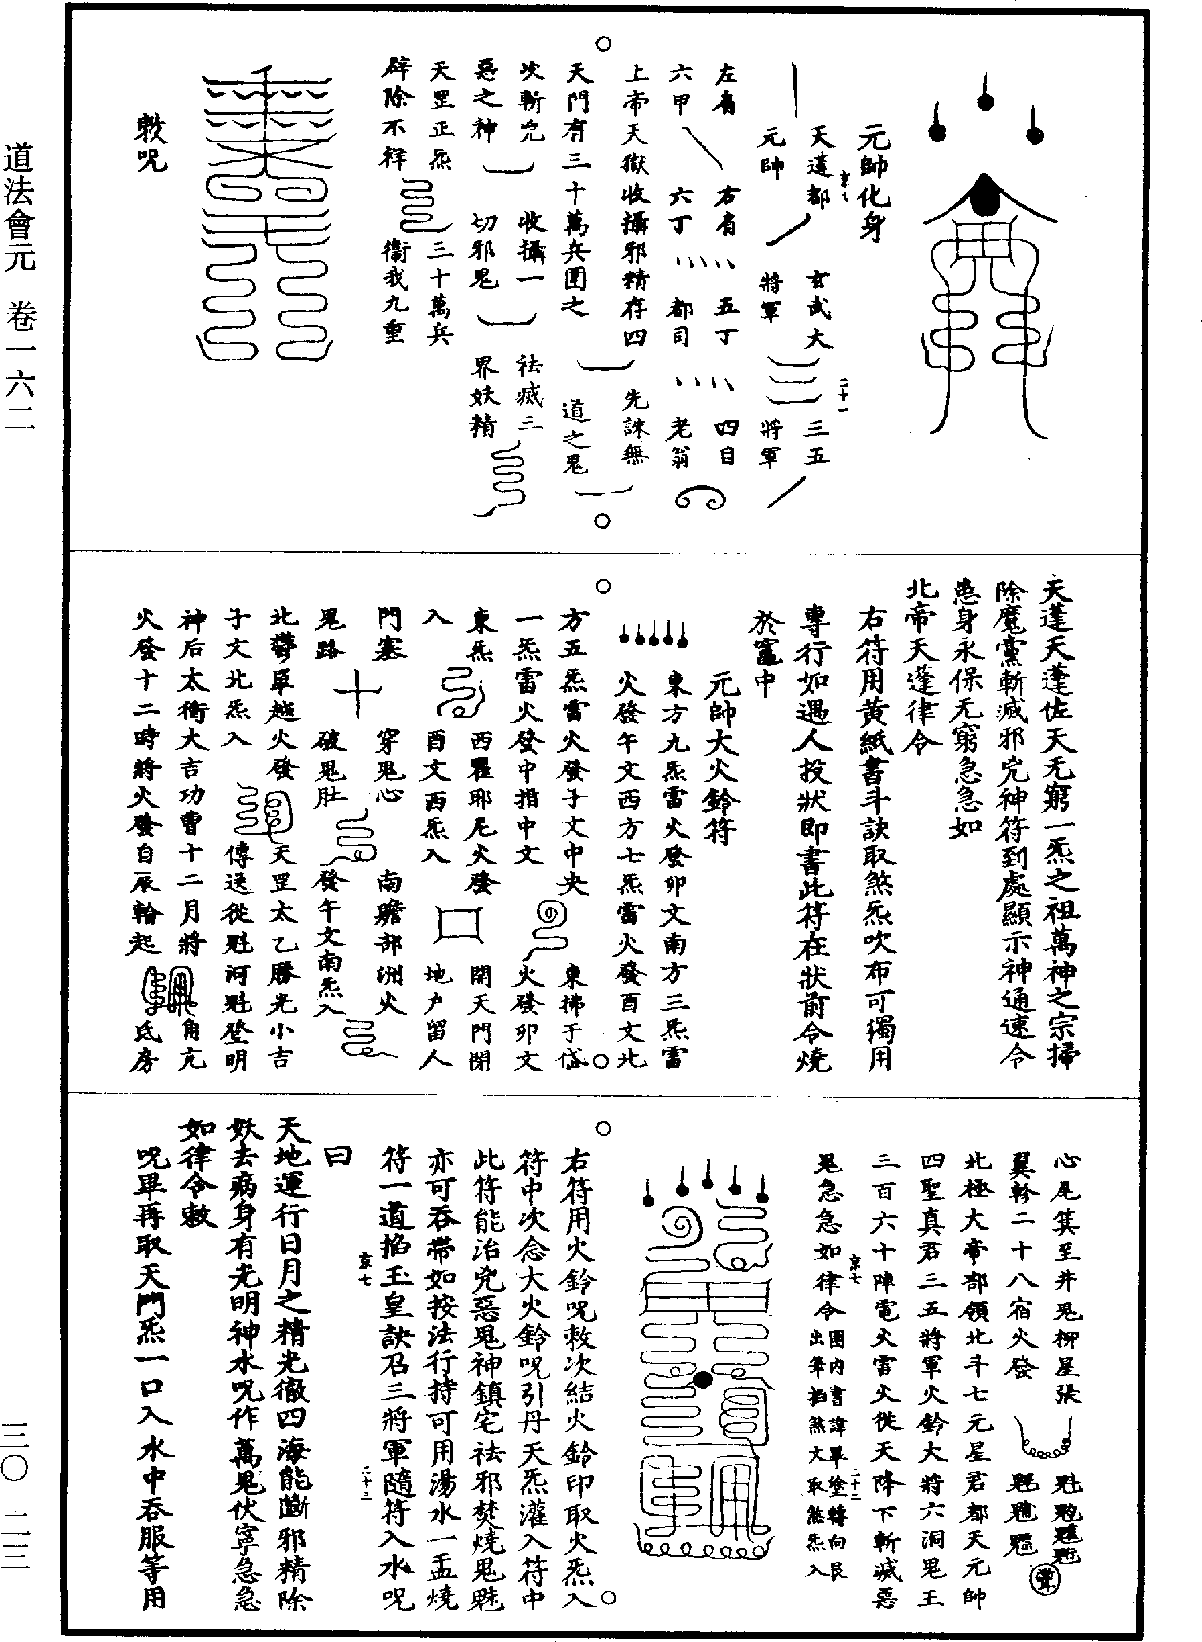 道法會元　卷一六二
三〇　二三
元帥化身
天蓬都
元帥
玄武大
將軍
三五
將軍
左有
六甲
右有
六丁
五丁
都司
四目
老翁
上帝天獄收攝邪精存四
天門有三十萬兵圍之
先誅無
道之鬼
次斬兇
惡之神
收攝一
切邪鬼
袪滅三
界妖精
天罡正炁
辟除不祥
三十萬兵
衞我九重
敕呪
天蓬天蓬佐天无窮一炁之祖萬神之宗掃
除魔黨斬滅邪兇神符到處顯示神通速令
患身永保无窮急急如
北帝天蓬律令
右符用黃紙書斗訣取煞炁吹布可獨用
專行如遇人投狀即書此符在狀前令燒
於竈中
元帥大火鈴符
東方九炁雷火發卯文南方三炁雷
火發午文西方七炁雷火發酉文北
方五炁雷火發子文中央
一炁雷火發中指中文
東拂于岱
火發卯文
東炁
入
西瞿耶尼火發
酉文西炁入
閉天門閉
地户留人
門塞
鬼路
穿鬼心
破鬼肚
南贍部洲火
發午文南炁入
北鬱單越火發
子文北炁入
天罡太乙勝光小吉
傳送從魁河魁登明
神后太衝大吉功曹十二月將
火發十二時將火發自辰輪起
角亢
氐房
心尾箕至井鬼柳星張
翼軫二十八宿火發
北極大帝部領北斗七元星君都天元帥
四聖真君三五將軍火鈴大將六洞鬼王
三百六十陣電火雷火從天降下斬滅惡
鬼急急如律令圈内書諱單塗轉向艮
出筆掐煞文取煞炁入
右符用火鈴呪敕次結火鈴印取火炁入
符中次念大火鈴呪引丹天炁灌入符中
此符能治兇惡鬼神鎮宅袪邪焚燒鬼魅
亦可吞帶如按法行持可用湯水一盂燒
符一道掐玉皇訣召三將軍隨符入水呪
曰
天地運行日月之精光徹四海能斷邪精除
妖去病身有光明神水呪作萬鬼伏寧急急
如律令敕
呪畢再取天門炁一口入水中吞服等用